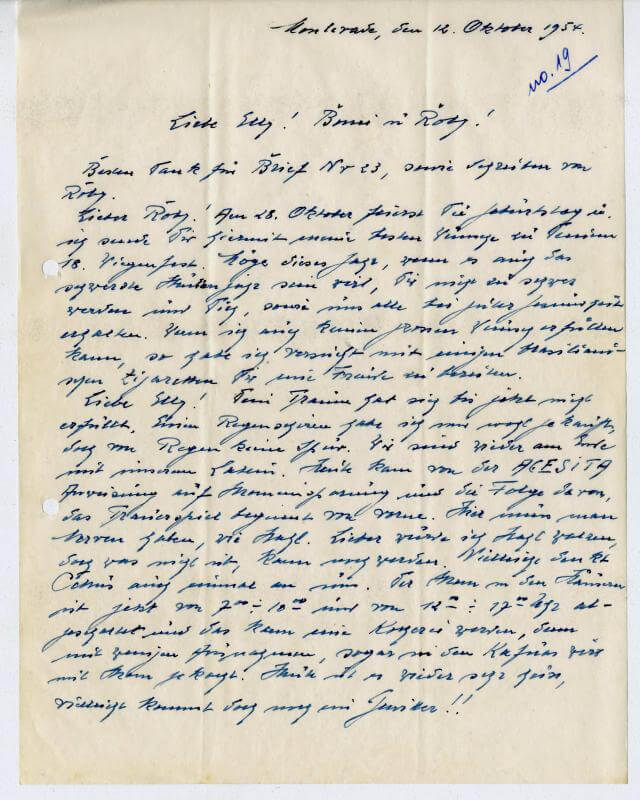 Monlevade, den 12. Oktober 1954.
no. 19
Liebe Elly! Bömi u Röby!
Besten Dank für Brief Nr 23, sowie Schreiben von
Röby.
Lieber Röby! Am 28. Oktober feierst Du Geburtstag u.
ich sende Dir hiermit meine besten Wünsche zu Deinem
18. Wiegenfest. Möge dieses Jahr, wenn es auch das
schwerste Jahr sein wird, Dir nicht zu schwer
werden und Dich, sowie uns alle bei guter Gesundheit
erhalten. Wenn ich auch keinen grossen Wunsch erfüllen
kann, so habe ich versucht mit einigen brasiliani-
schen Zigaretten Dir eine Freude zu bereiten.
Liebe Elly! Dein Traum hat sich bis jetzt nicht
erfüllt, einen Regenschirm habe ich mir wohl gekauft,
doch von Regen keine Spur. Wir sind wieder am Ende
mit unserem Latein. Heute kam von der ACESITA
Anweisung auf Stromeinsparung und die Folge davon,
das Trauerspiel beginnt von vorne. Hier muss man
Nerven haben, wie Stahl. Lieber würde ich Stahl walzen,
doch was nicht ist, kann noch werden. Vielleicht denkt
auch einmal an uns. Der Strom in den Häusern
ist jetzt von 7 ÷ 10 und von 12 ÷ 17 Uhr ab-
geschaltet und das kann eine Kocherei werden, denn
mit wenigen Ausnahmen, sogar in den Kasinos wird
mit Strom gekocht. Heute ist es wieder sehr heiss,
vielleicht kommt doch noch ein Gewitter!!